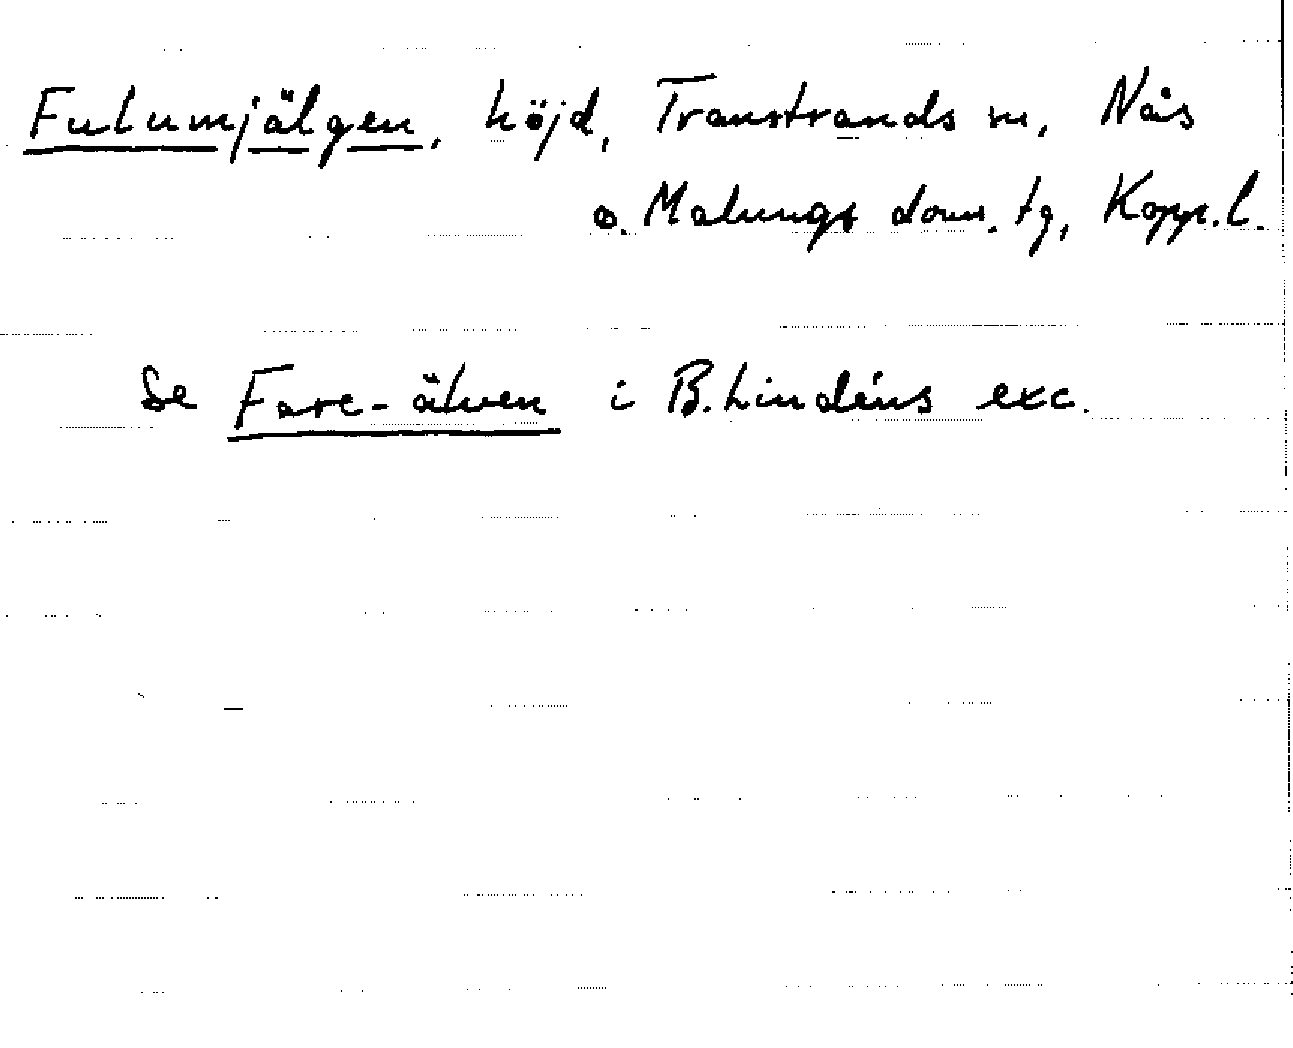 Fulumjälgen, höjd, Transtrands sn, Nås
o. Malungs doms. tg, Kopp. l.
Se Fare-älven i B. Lindéns exc.